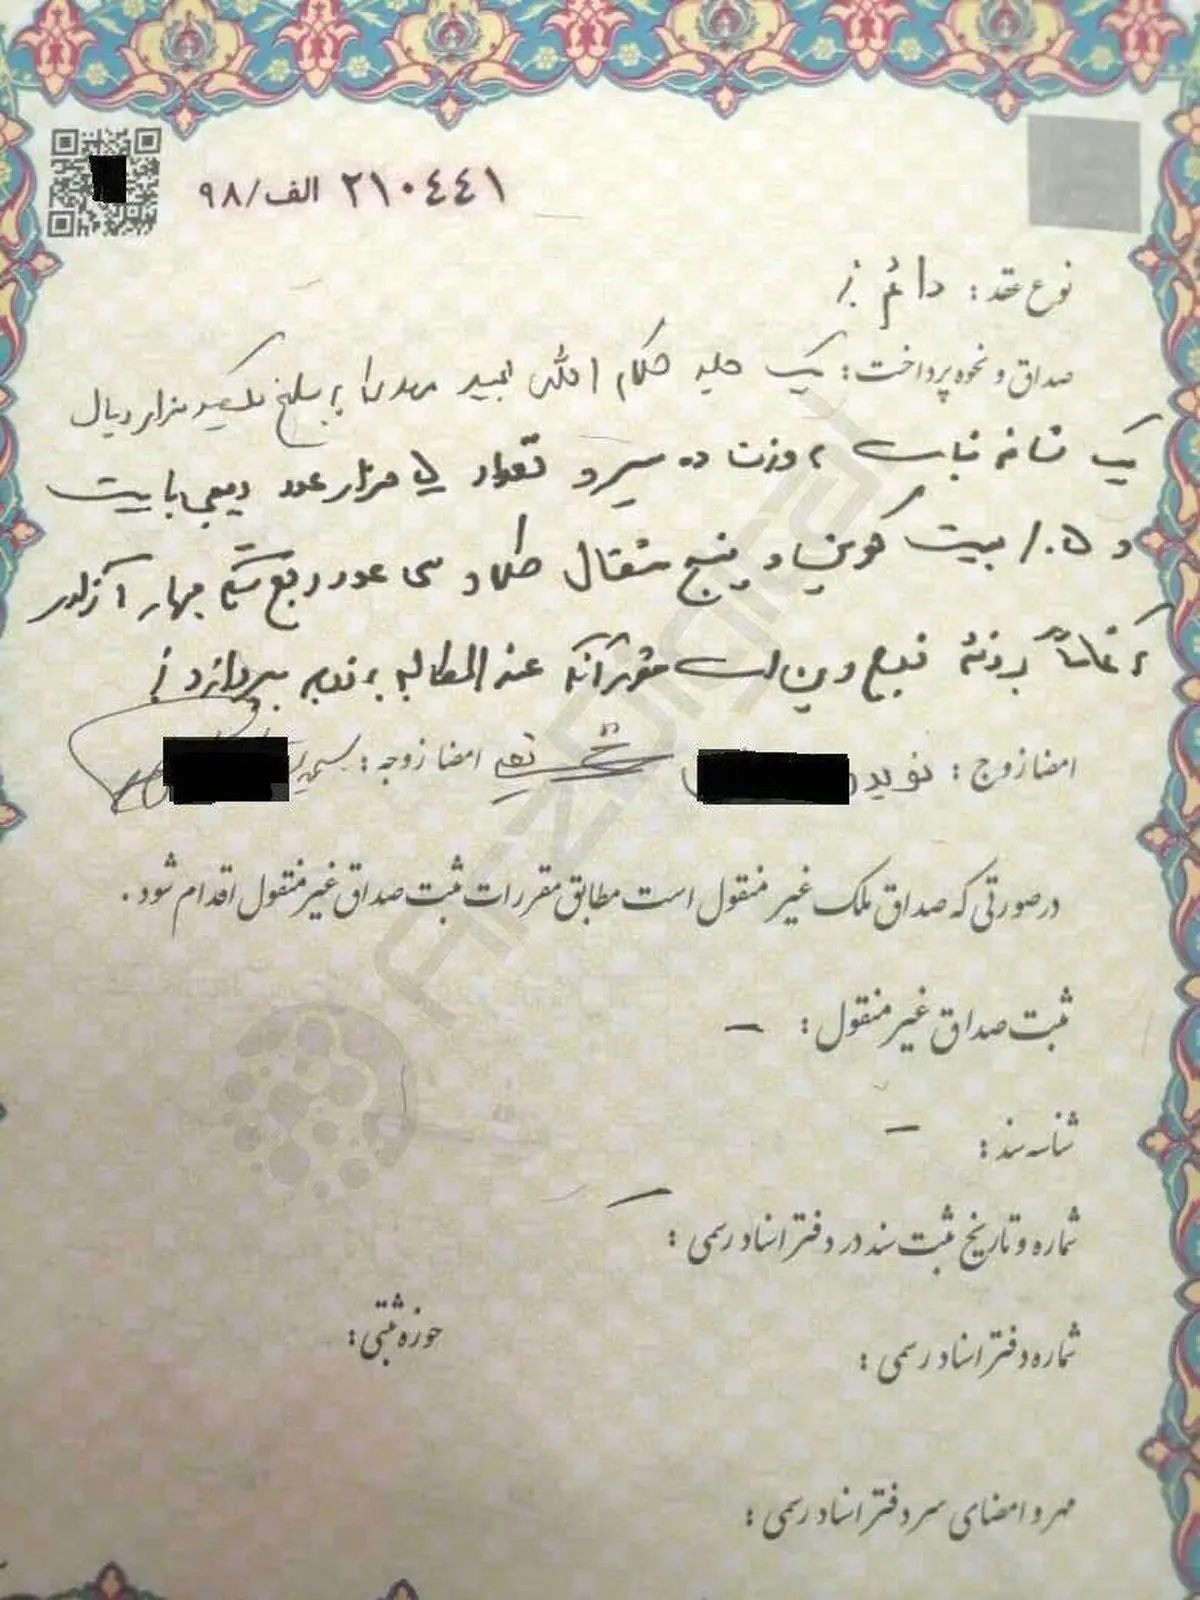 ۲۱۰٤٤۱ الف/۹۸
نوع عقد: دائم
صداق و نحوه پرداخت: یک جلد کلام الله مجید به مبلغ یکصد هزار ریال
یک شاخه نبات به وزن ده سیر و تعداد هزار عدد
و ۱۰۵ بیت کوین و پنج مثقال طلا و سی عدد ربع سکه بهار آزادی
که تماماً بر ذمه زوج دین است عندالمطالبه به زوجه بپردازد
امضا زوج: نوید امضا زوجه:
در صورتی که صداق ملک غیر منقول است مطابق مقررات ثبت صداق غیر منقول اقدام شود.
ثبت صداق غیر منقول: –
شناسه سند: –
شماره و تاریخ ثبت سند در دفتر اسناد رسمی: –
شماره دفتر اسناد رسمی: حوزه ثبتی:
مهر و امضای سردفتر اسناد رسمی:
ARZDIGITAL